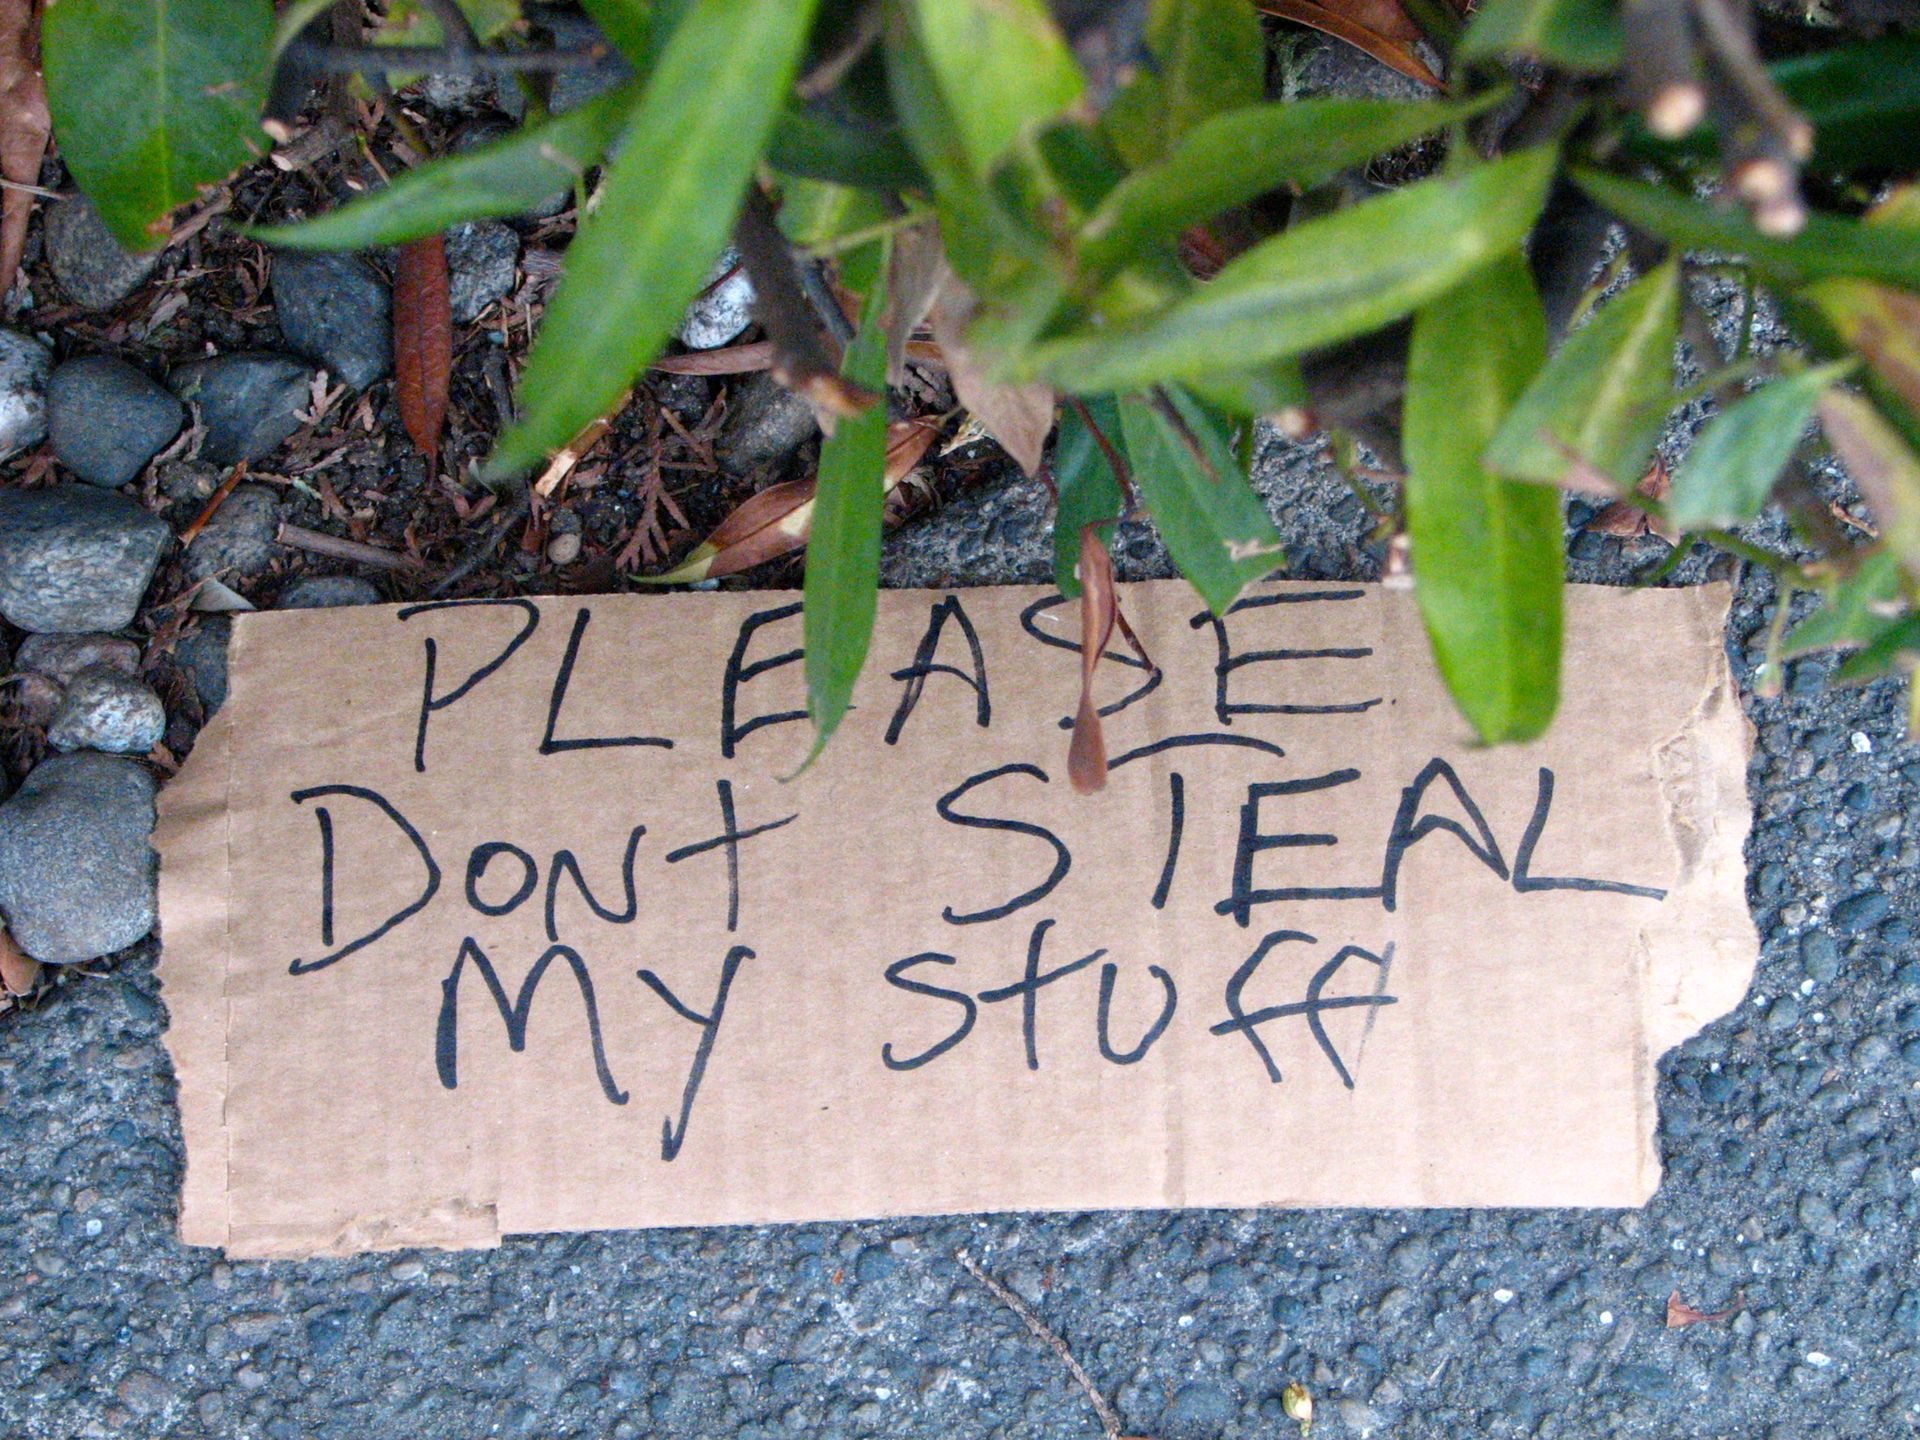 PLEASE
DONT STEAL
MY STUFF